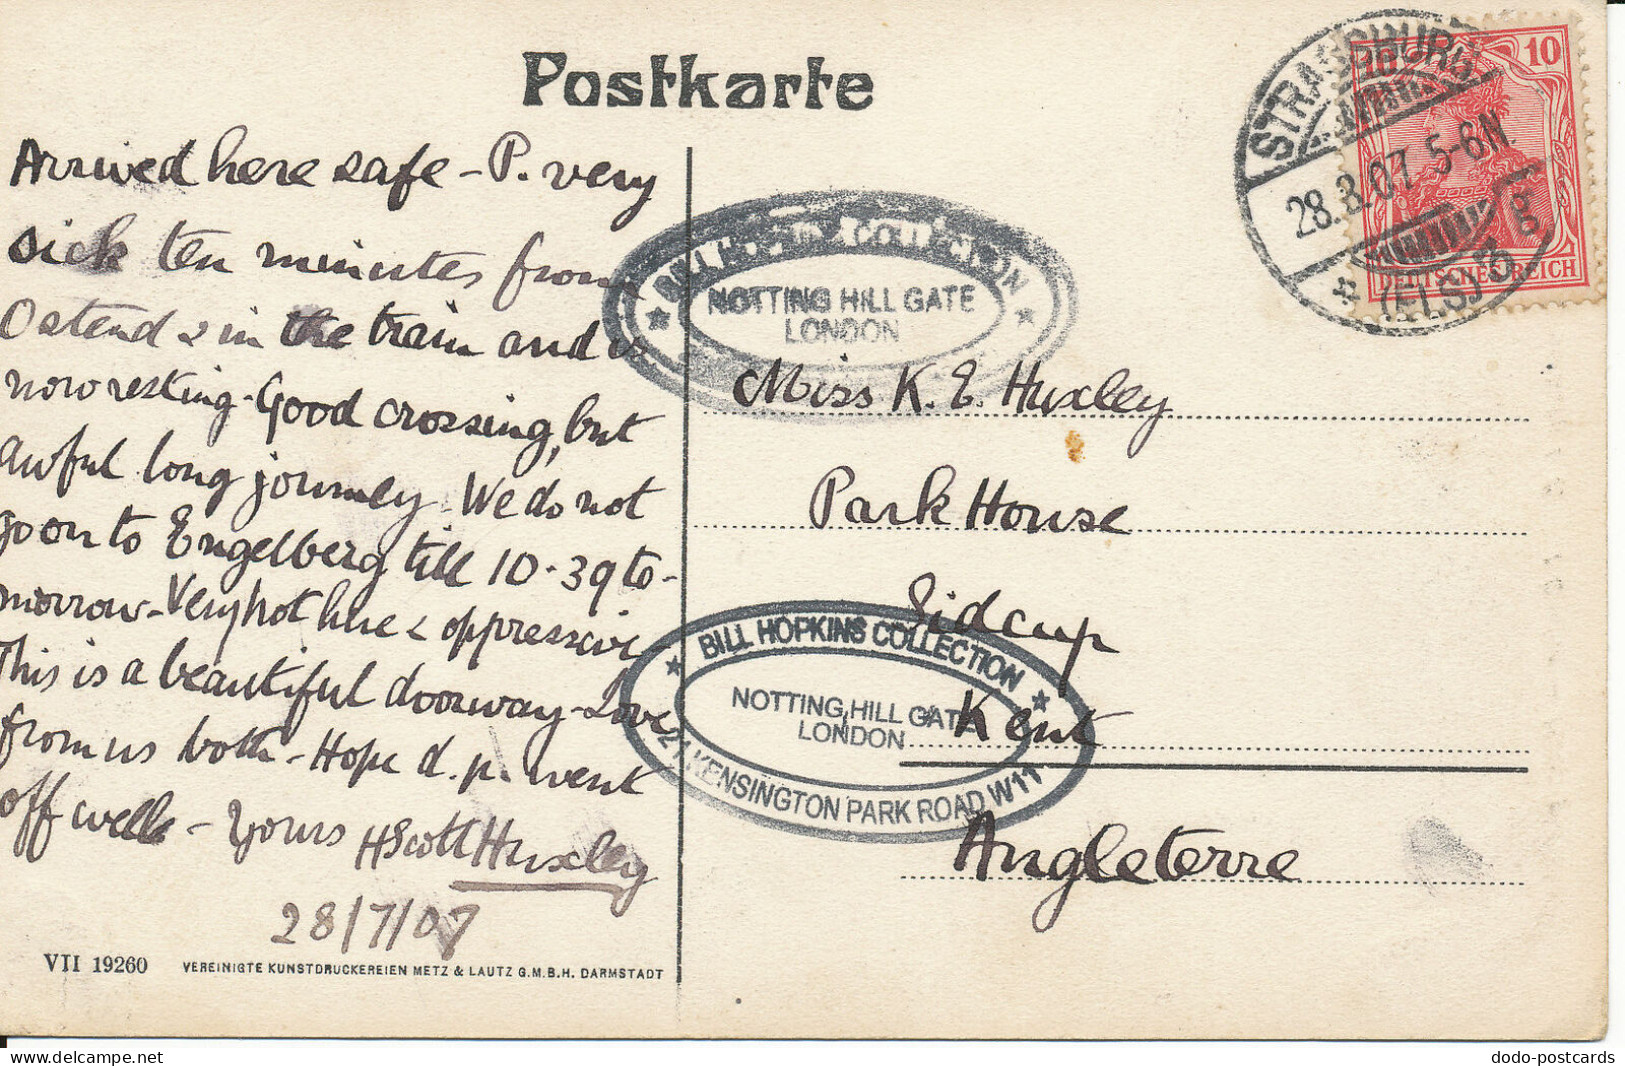 Postkarte
Arrived here safe – P. very
sick ten minutes from
Ostend & in the train and is
now resting. Good crossing, but
awful long journey. We do not
go on to Engelberg till 10.39 to-
morrow – Very hot here & oppressive
This is a beautiful doorway – Love
from us both – Hope d. p. went
off well – Yours HScott Huxley
28/7/07
VII 19260 VEREINIGTE KUNSTDRUCKEREIEN METZ & LAUTZ G.M.B.H. DARMSTADT
STRASSBURG
28.8.07. 5-6N.
* (ELS) 3 g
10
DEUTSCHES REICH
NOTTING HILL GATE
LONDON
Miss K. E. Huxley
Park House
Sidcup
Kent
Angleterre
★ BILL HOPKINS COLLECTION ★
NOTTING HILL GATE
LONDON
KENSINGTON PARK ROAD W11
dodo-postcards